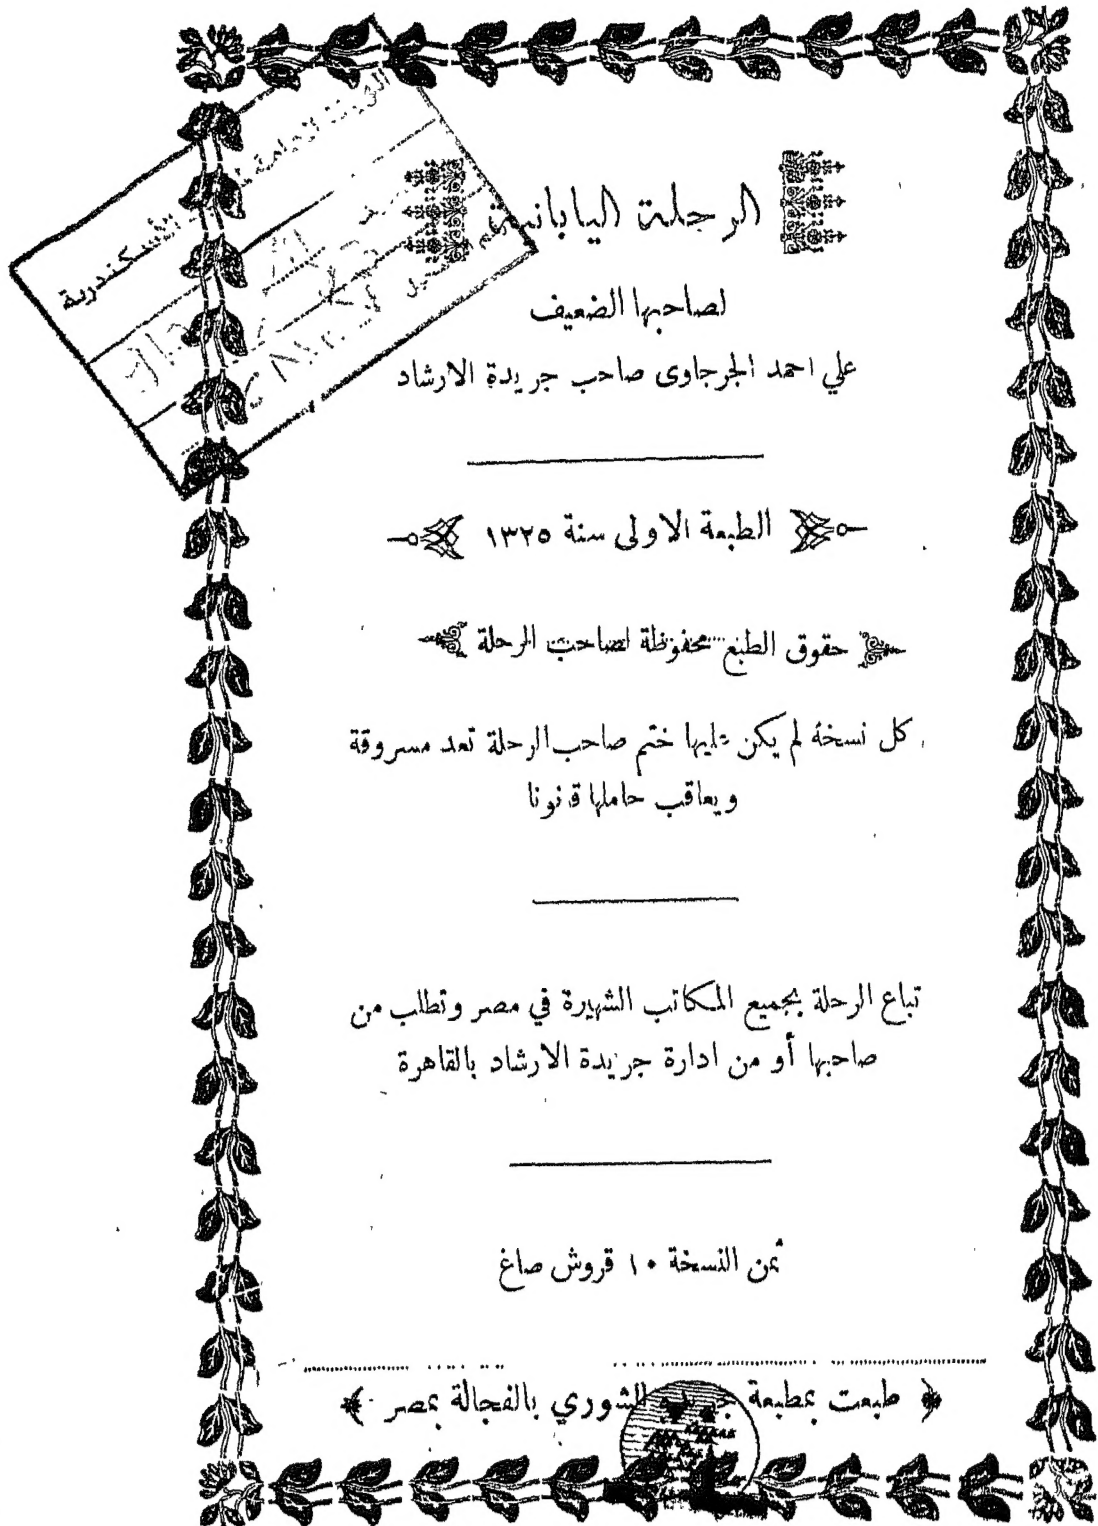 الهيئة العامة لمكتبة الأسكندرية
الرحلة اليابانية
لصاحبها الضعيف
علي احمد الجرجاوى صاحب جريدة الارشاد
الطبعة الاولى سنة ١٣٢٥
حقوق الطبع محفوظة لصاحب الرحلة
كل نسخة لم يكن عليها ختم صاحب الرحلة تعد مسروقة
ويعاقب حاملها قانونا
تباع الرحلة بجميع المكاتب الشهيرة في مصر وتطلب من
صاحبها أو من ادارة جريدة الارشاد بالقاهرة
ثمن النسخة ١٠ قروش صاغ
طبعت بمطبعة جريدة الشوري بالفجالة بمصر